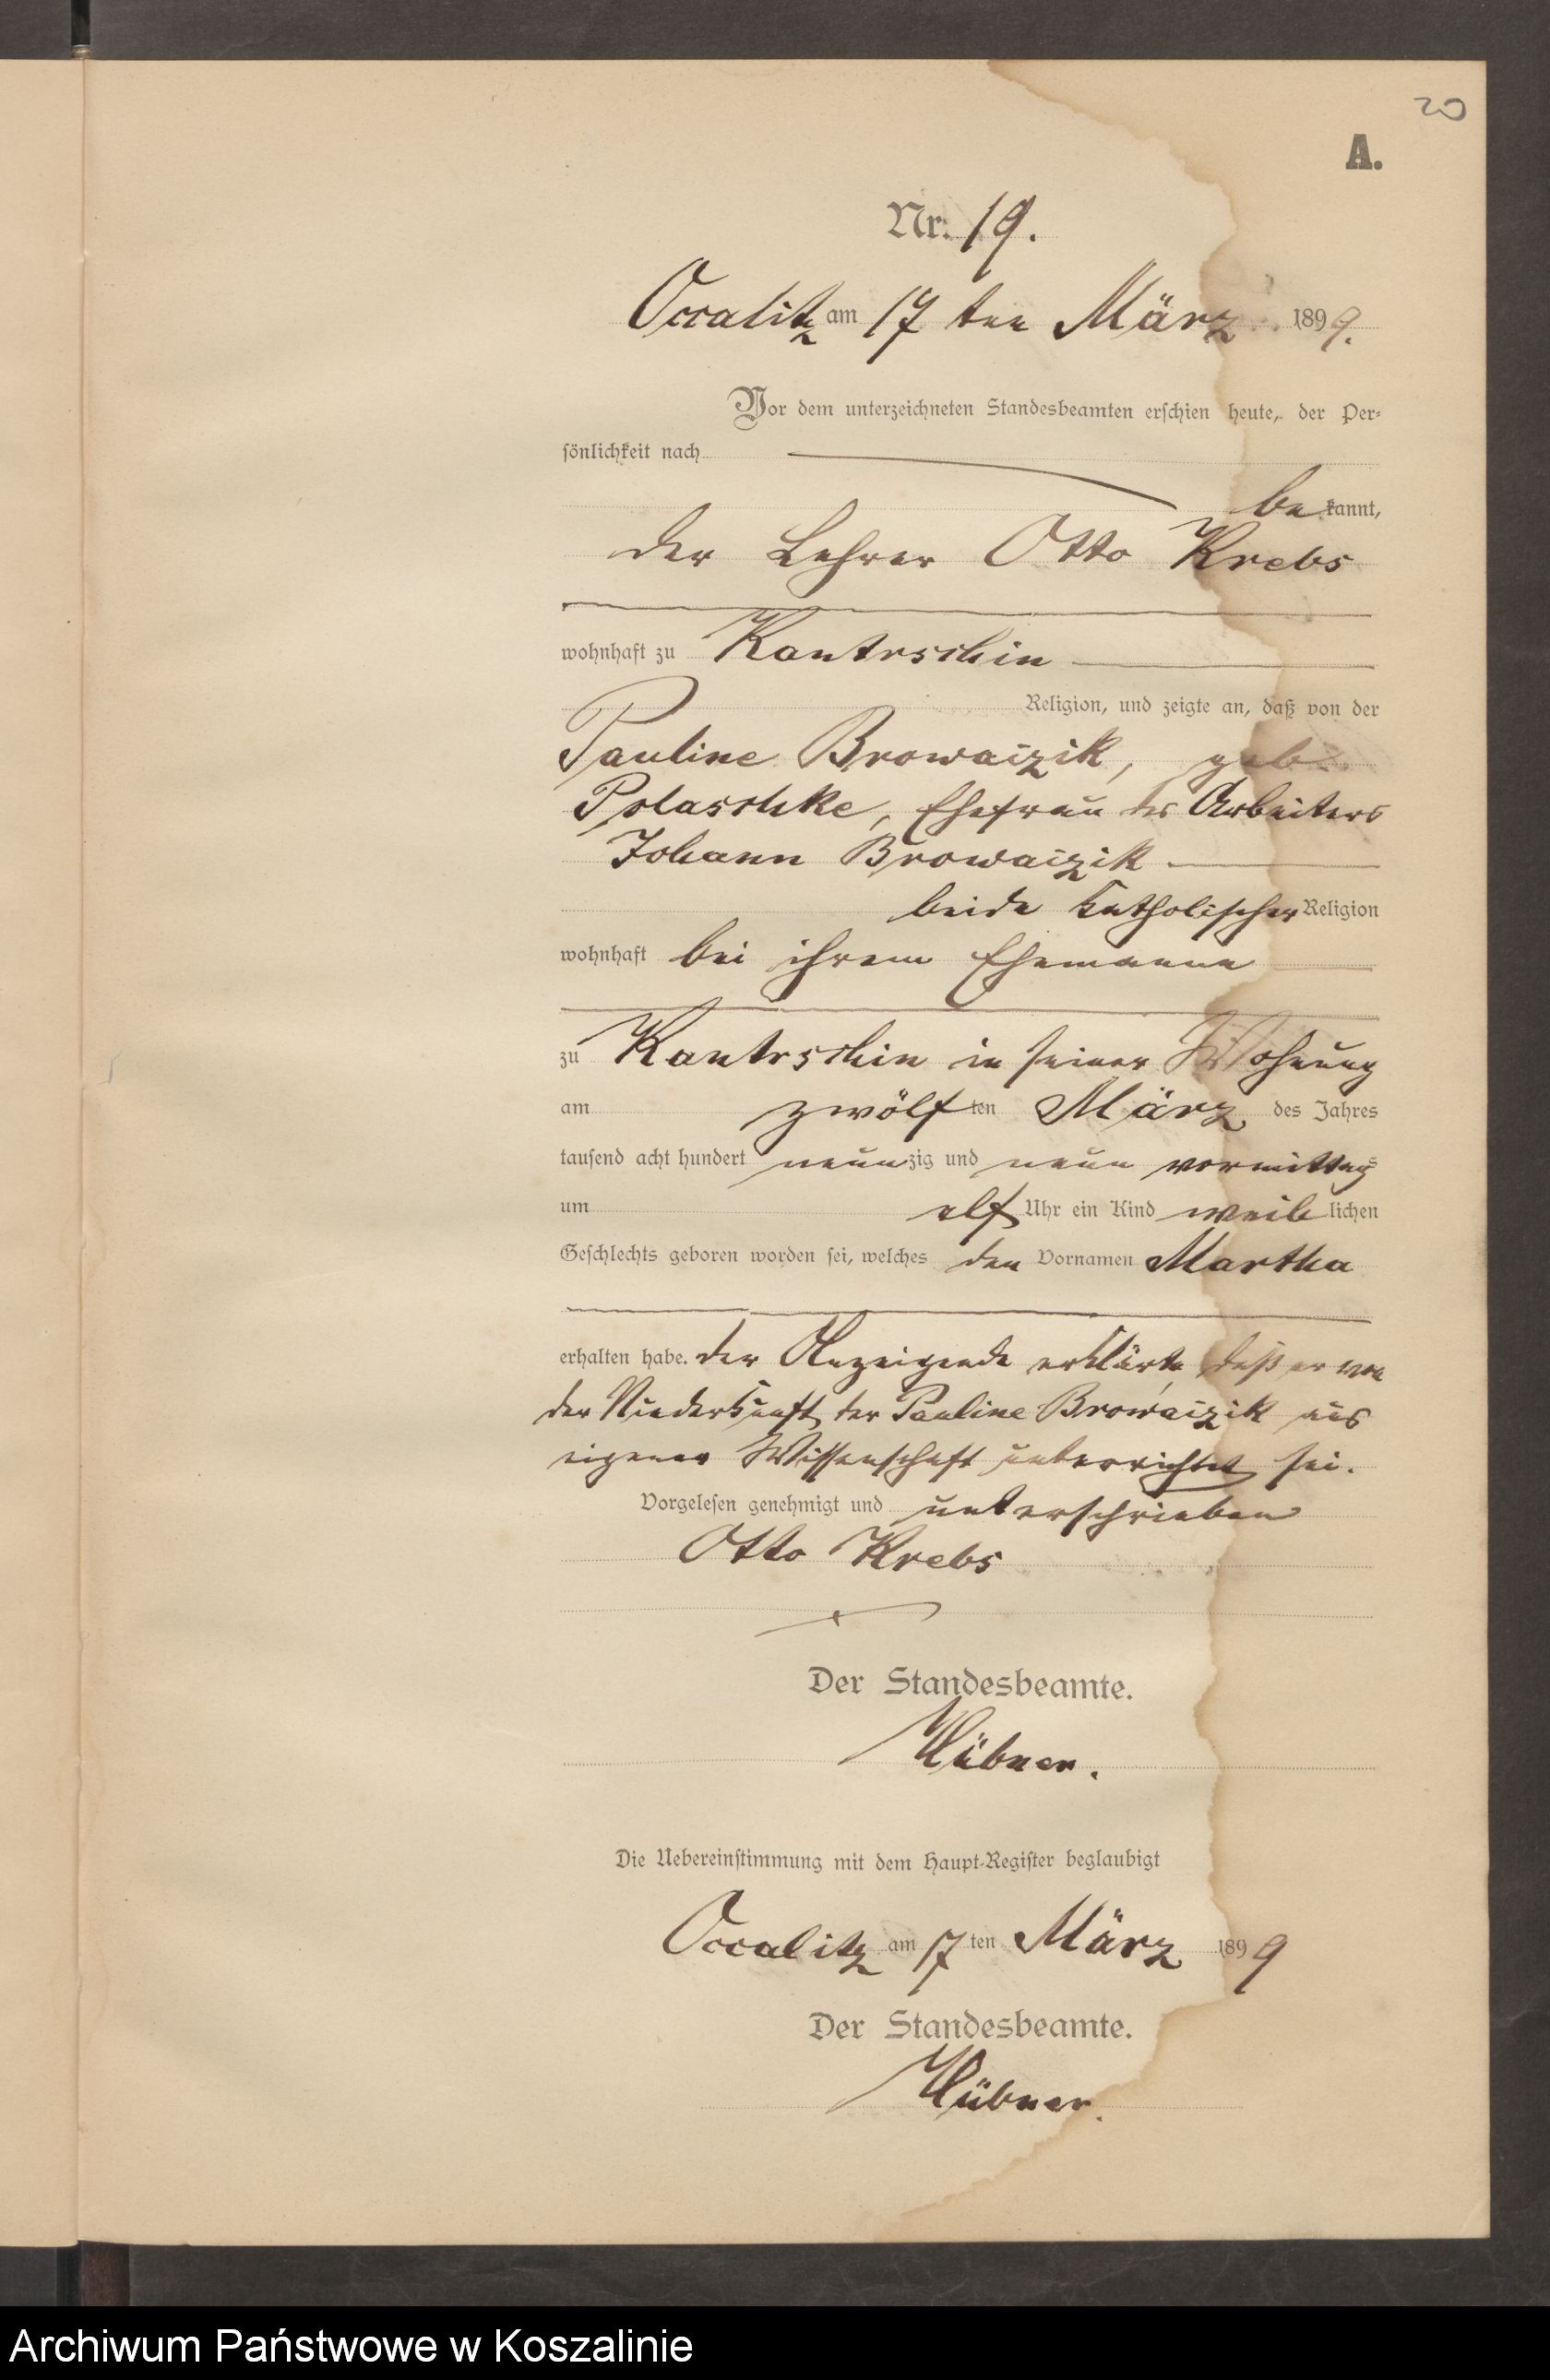 20
A.
Nr. 19.
Occalitz am 17 ten März 1899.
Vor dem unterzeichneten Standesbeamten erschien heute, der Per-
sönlichkeit nach
bekannt,
der Lehrer Otto Krebs
wohnhaft zu Kantrschin
Religion, und zeigte an, daß von der
Pauline Browaizik, geb.
Polaschke, Ehefrau des Arbeiters
Johann Browaizik
beide katholischer Religion
wohnhaft bei ihrem Ehemanne
zu Kantrschin in seiner Wohnung
am zwölften März des Jahres
tausend acht hundert neunzig und neun vormittags
um elf Uhr ein Kind weiblichen
Geschlechts geboren worden sei, welches den Vornamen Martha
erhalten habe. Der Anzeigende erklärte, daß er von
der Niederkunft der Pauline Browaizik aus
eigener Wissenschaft unterrichtet sei.
Vorgelesen genehmigt und unterschrieben
Otto Krebs
Der Standesbeamte.
Hübner.
Die Uebereinstimmung mit dem Haupt-Register beglaubigt
Occalitz am 17ten März 1899
Der Standesbeamte.
Hübner.
Archiwum Państwowe w Koszalinie